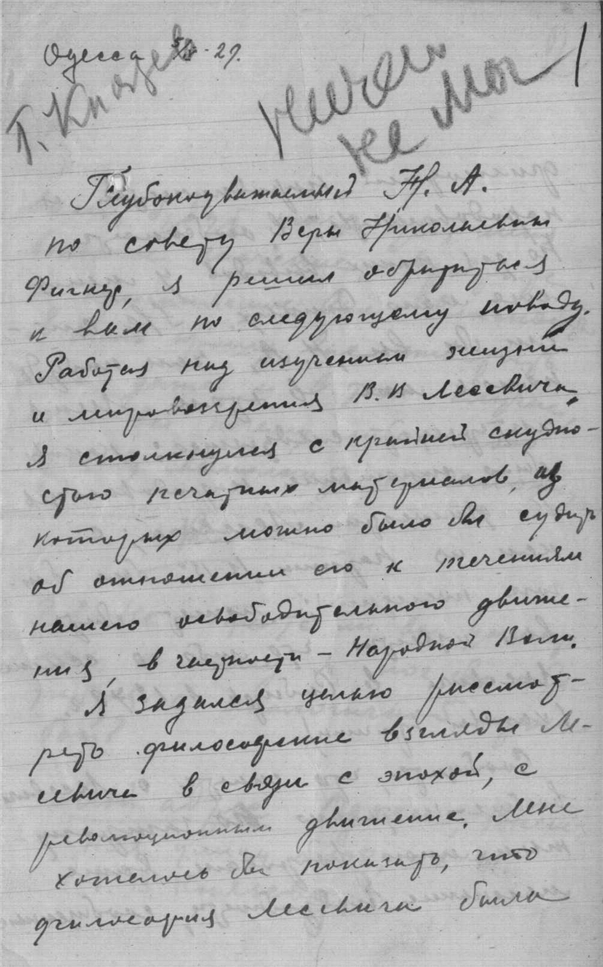 Одесса 5/X-29.
Г. Князев
не мог
1
Глубокоуважаемый Н. А.
по совету Веры Николаевны
Фигнер, я решил обратиться
к вам по следующему поводу.
Работая над изучением жизни
и мировоззрения В.В Лесевича,
я столкнулся с крайней скудно-
стью печатных материалов, из
которых можно было бы судить
об отношении его к течениям
нашего освободительного движе-
ния, в частности – Народной Воли.
Я задался целью рассмот-
реть философские взгляды Ле-
севича в связи с эпохой, с
революционным движение. Мне
хотелось бы показать, что
философия Лесевича была